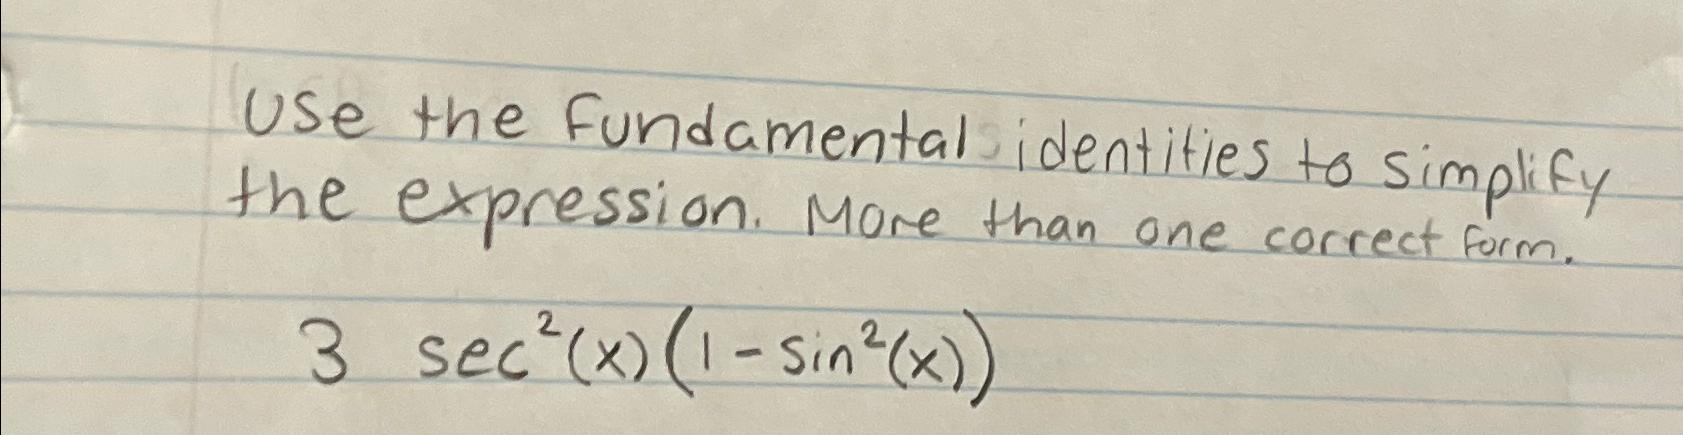 Use the fundamental identities to simplify
the expression. More than one correct form.
3 sec²(x)(1-sin²(x))